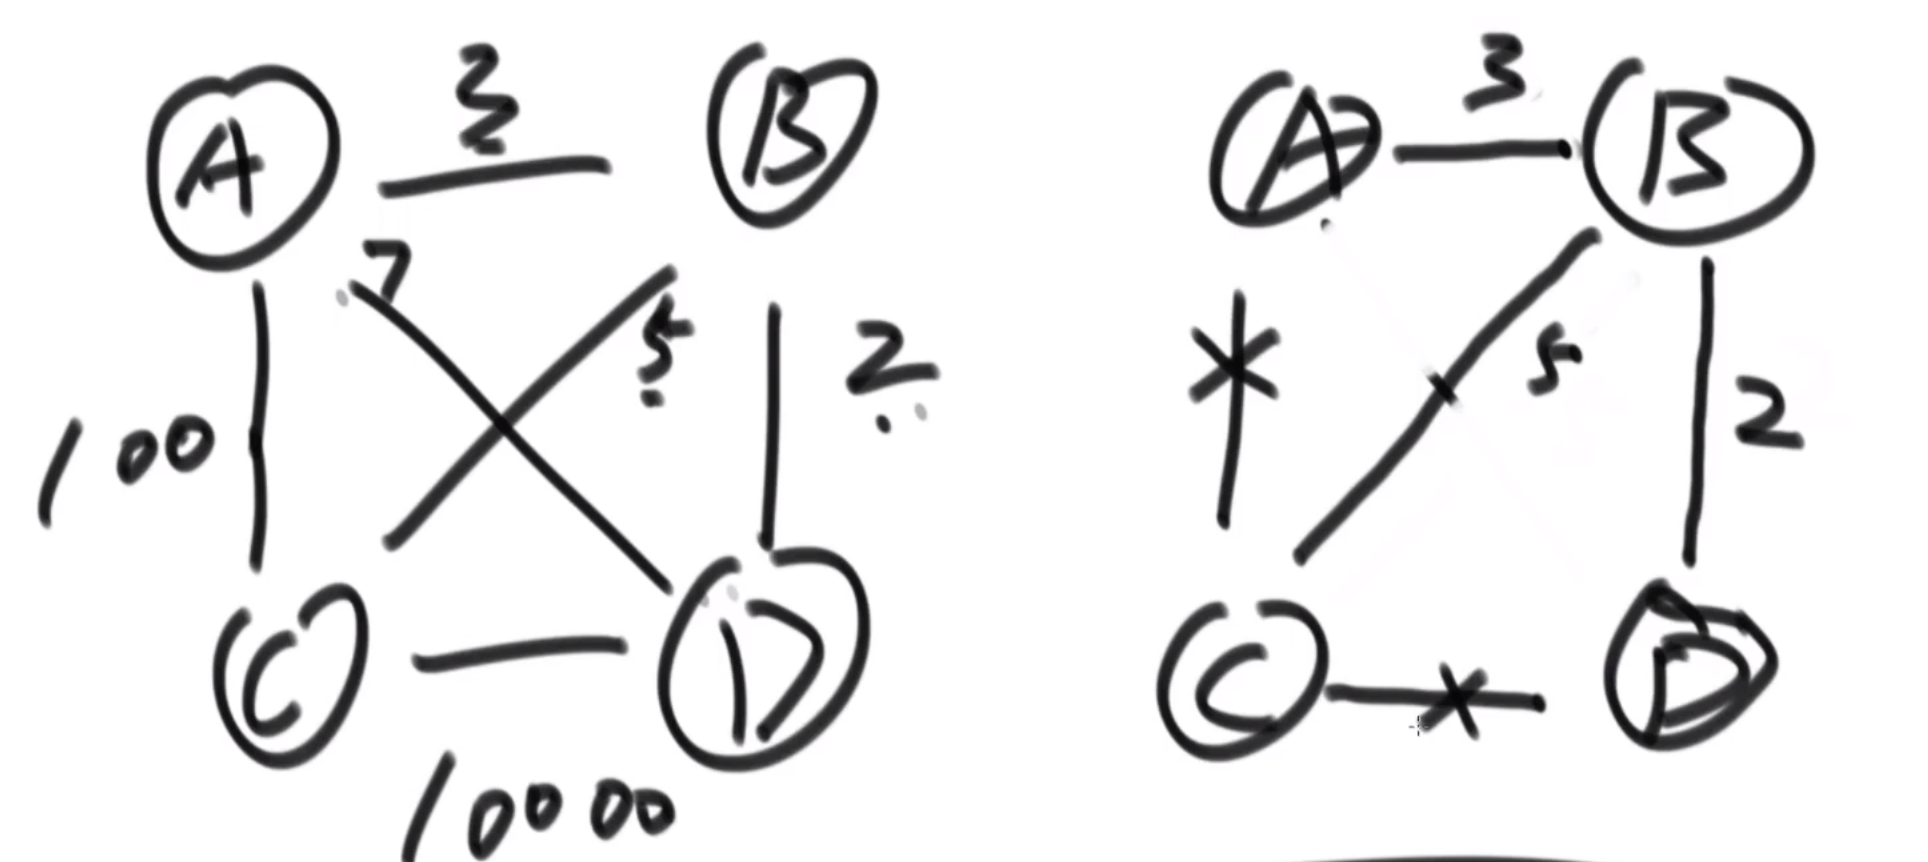 3
A B
7
5
2
100
C D
10000
3
A B
5
2
C D